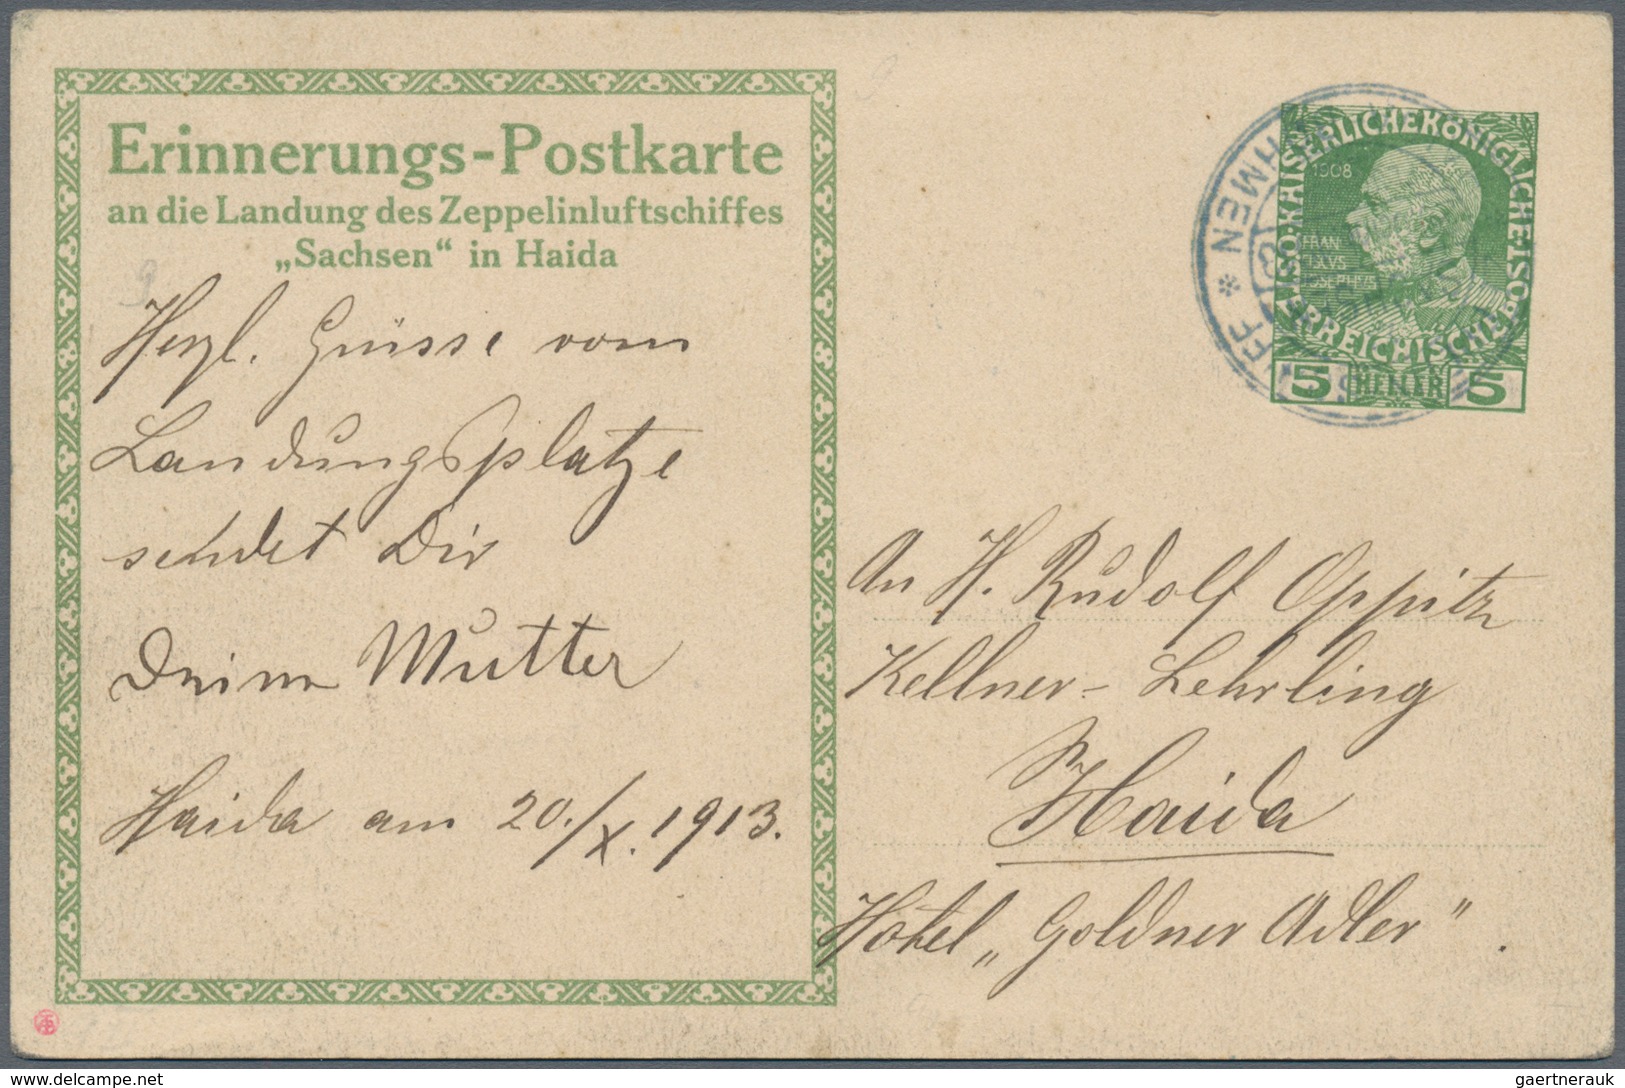 Erinnerungs-Postkarte
an die Landung des Zeppelinluftschiffes
„Sachsen“ in Haida
Herzl. Grüsse vom
Landungsplatze
sendet Dir
Deine Mutter
Haida am 20./X. 1913.
KAISERLICHE KÖNIGLICHE POST
ÖSTERREICHISCHE
1908
FRAN
IOSEPHVS
5 HELLER 5
HMEN *
An H. Rudolf Oppitz
Kellner-Lehrling
Haida
Hotel „Goldner Adler".
www.delcampe.net
gaertnerauk